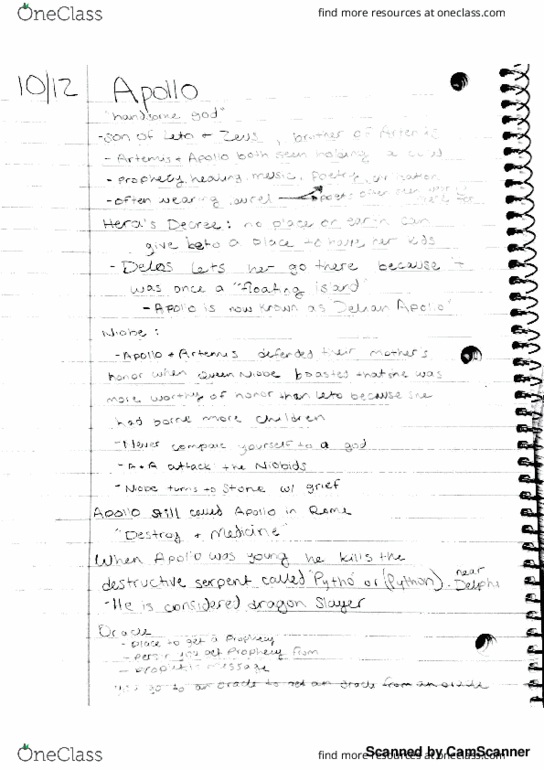 OneClass
find more resources at oneclass.com
10/12 Apollo
"handsome god"
-son of Leto + Zeus, brother of Artemis
- Artemis + Apollo both seen holding a
- Prophecy, healing, music, Poetry,
- often wearing laurel poets often
Hera's Decree: no place on earth can
give Leto a place to have her kids
- Delos lets her go there because it
was once a "floating island"
- Apollo is now known as "Delian Apollo"
Niobe:
-Apollo + Artemis defended their mother's
honor when Queen Niobe boasted that she was
more worthy of honor than Leto because she
had borne more children
-Never compare yourself to a god
- A+A attack the Niobids
-Niobe turns to stone w/ grief
Apollo still called Apollo in Rome
"Destroy + Medicine"
When Apollo was young he kills the
destructive serpent called "Pytho" or (Python). near Delphi
-He is considered dragon slayer
Oracle
- place to get a Prophecy
- person you get Prophecy from
- prophetic message
go to an oracle to get an oracle from an oracle
OneClass
find more resources at oneclass.com
Scanned by CamScanner